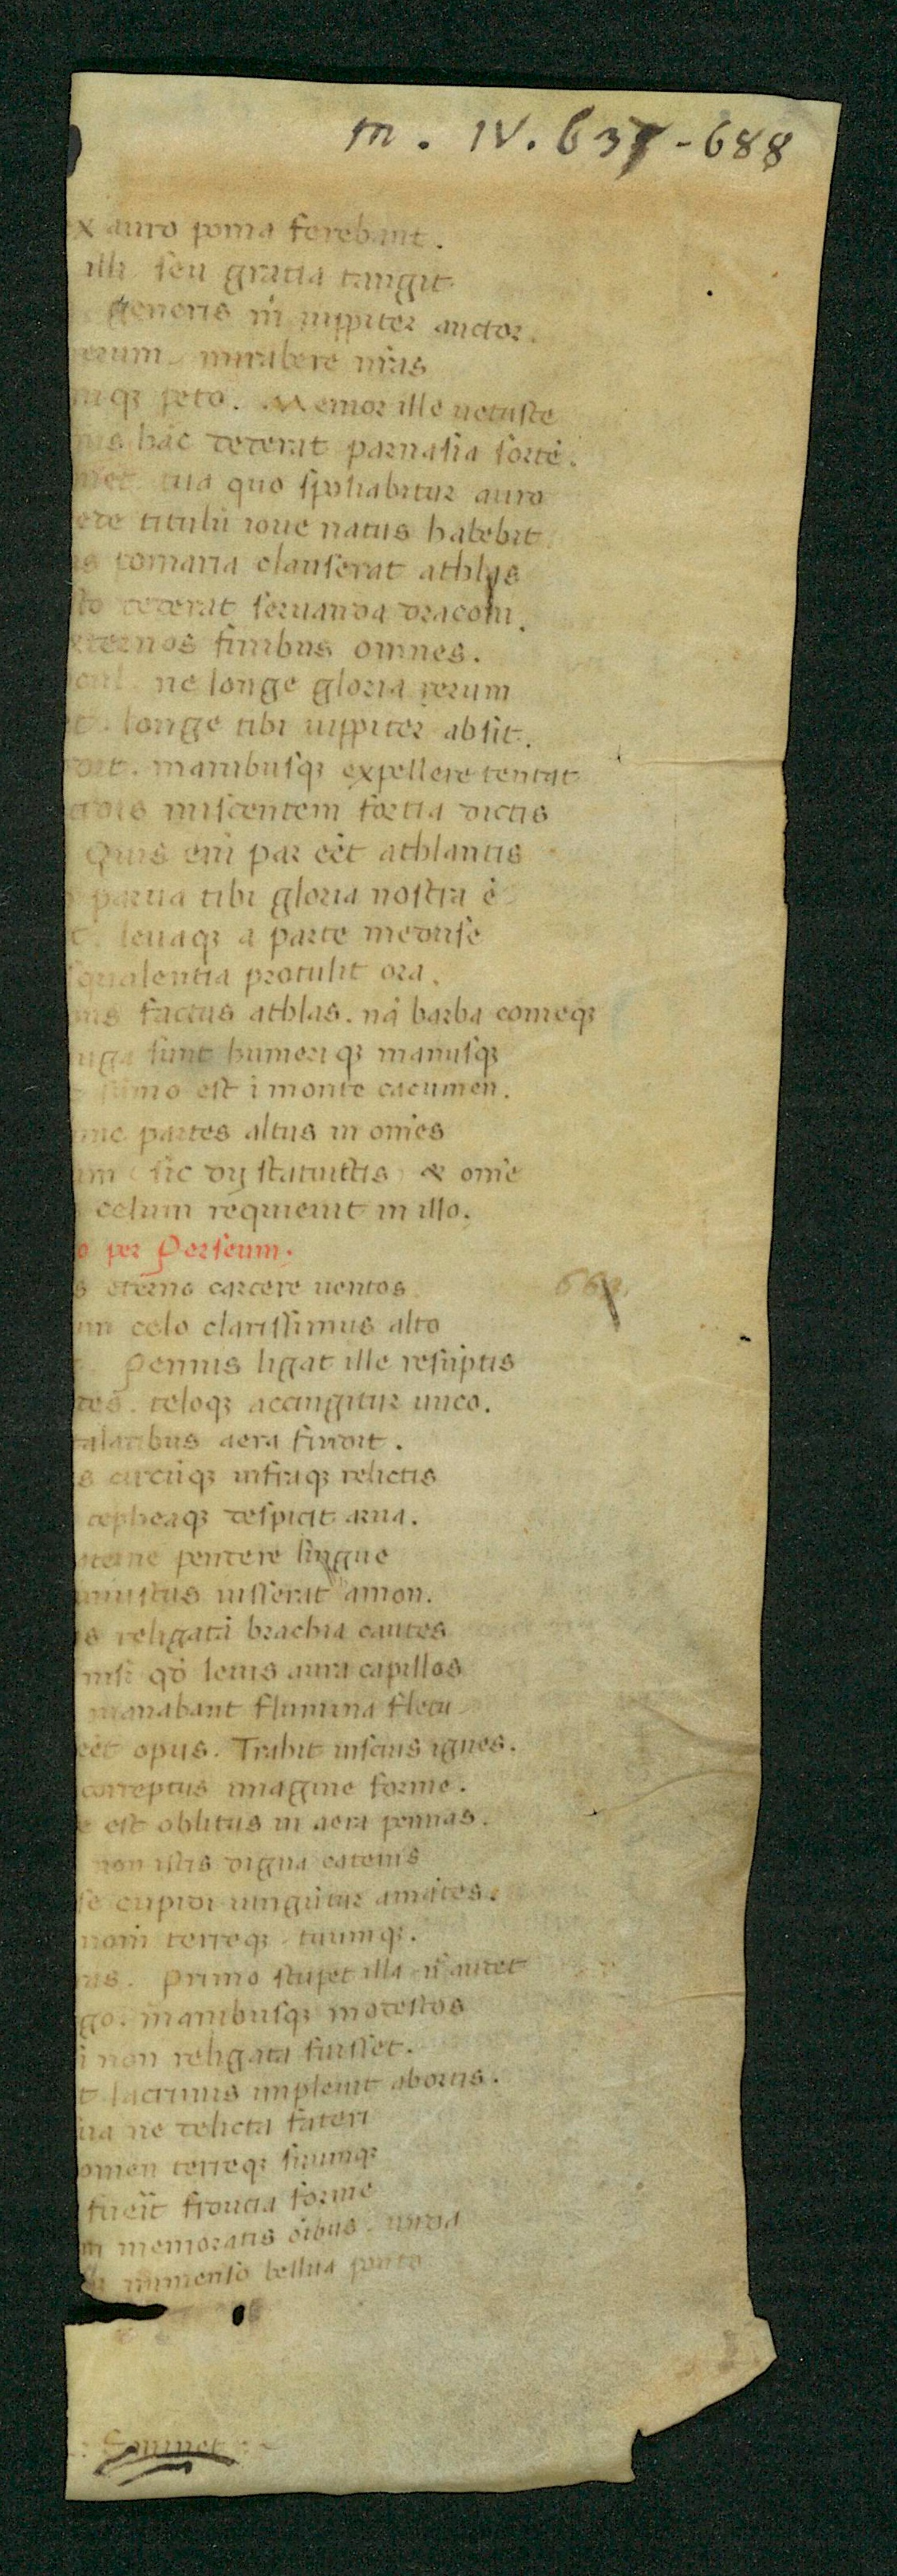 m. IV. 637-688
x auro poma ferebant.
illi seu gratia tangit
generis m̄ iuppiter auctor.
rerum mirabere nr̄as
iqꝫ peto. Memor ille uetuste
mis hāc dederat parnasia sortē.
niet tua quo spoliabitur auro
ere titulū ioue natus habebit
s pomaria clauserat athlas
to dederat seruanda draconi.
xternos finibus omnes.
ocul ne longe gloria rerum
t. longe tibi iuppiter absit.
dit. manibusqꝫ expellere tentat
cidis miscentem fortia dictis
Quis eni par eēt athlantis
parua tibi gloria nostra ē
t. leuaqꝫ a parte meduse
squalentia protulit ora.
ns factus athlas. nā barba comeqꝫ
uga sunt humeri qꝫ manusqꝫ
sūmo est ī monte cacumen.
nc partes altus in om̄es
um (sic dij statuistis) & om̄e
celum requieuit in illo.
o per Perseum.
s eterno carcere uentos
m celo clarissimus alto
Pennis ligat ille resūptis
tes. teloqꝫ accingitur unco.
alaribus aera findit.
s circūqꝫ infraqꝫ relictis
cepheaqꝫ despicit arua.
aterne pendere lingue
iniustus iusserat amon.
s religatā brachia cautes
nisi qđ leuis aura capillos
manabant flumina fletu
eēt opus. Trahit inscius ignes.
correptus imagine forme.
e est oblitus in aera pennas.
non istis digna catenis
se cupidi iungūtur amātes.
nom̄ terreqꝫ tuumqꝫ.
as. Primo silet illa n̄ audet
go. manibusqꝫ modestos
i non religata fuisset.
t lacrimis impleuit abortis.
ua ne delicta fateri
omen terreqꝫ suumqꝫ
fuerit fiducia forme
m memoratis oībus. unda
immenso bellua ponto